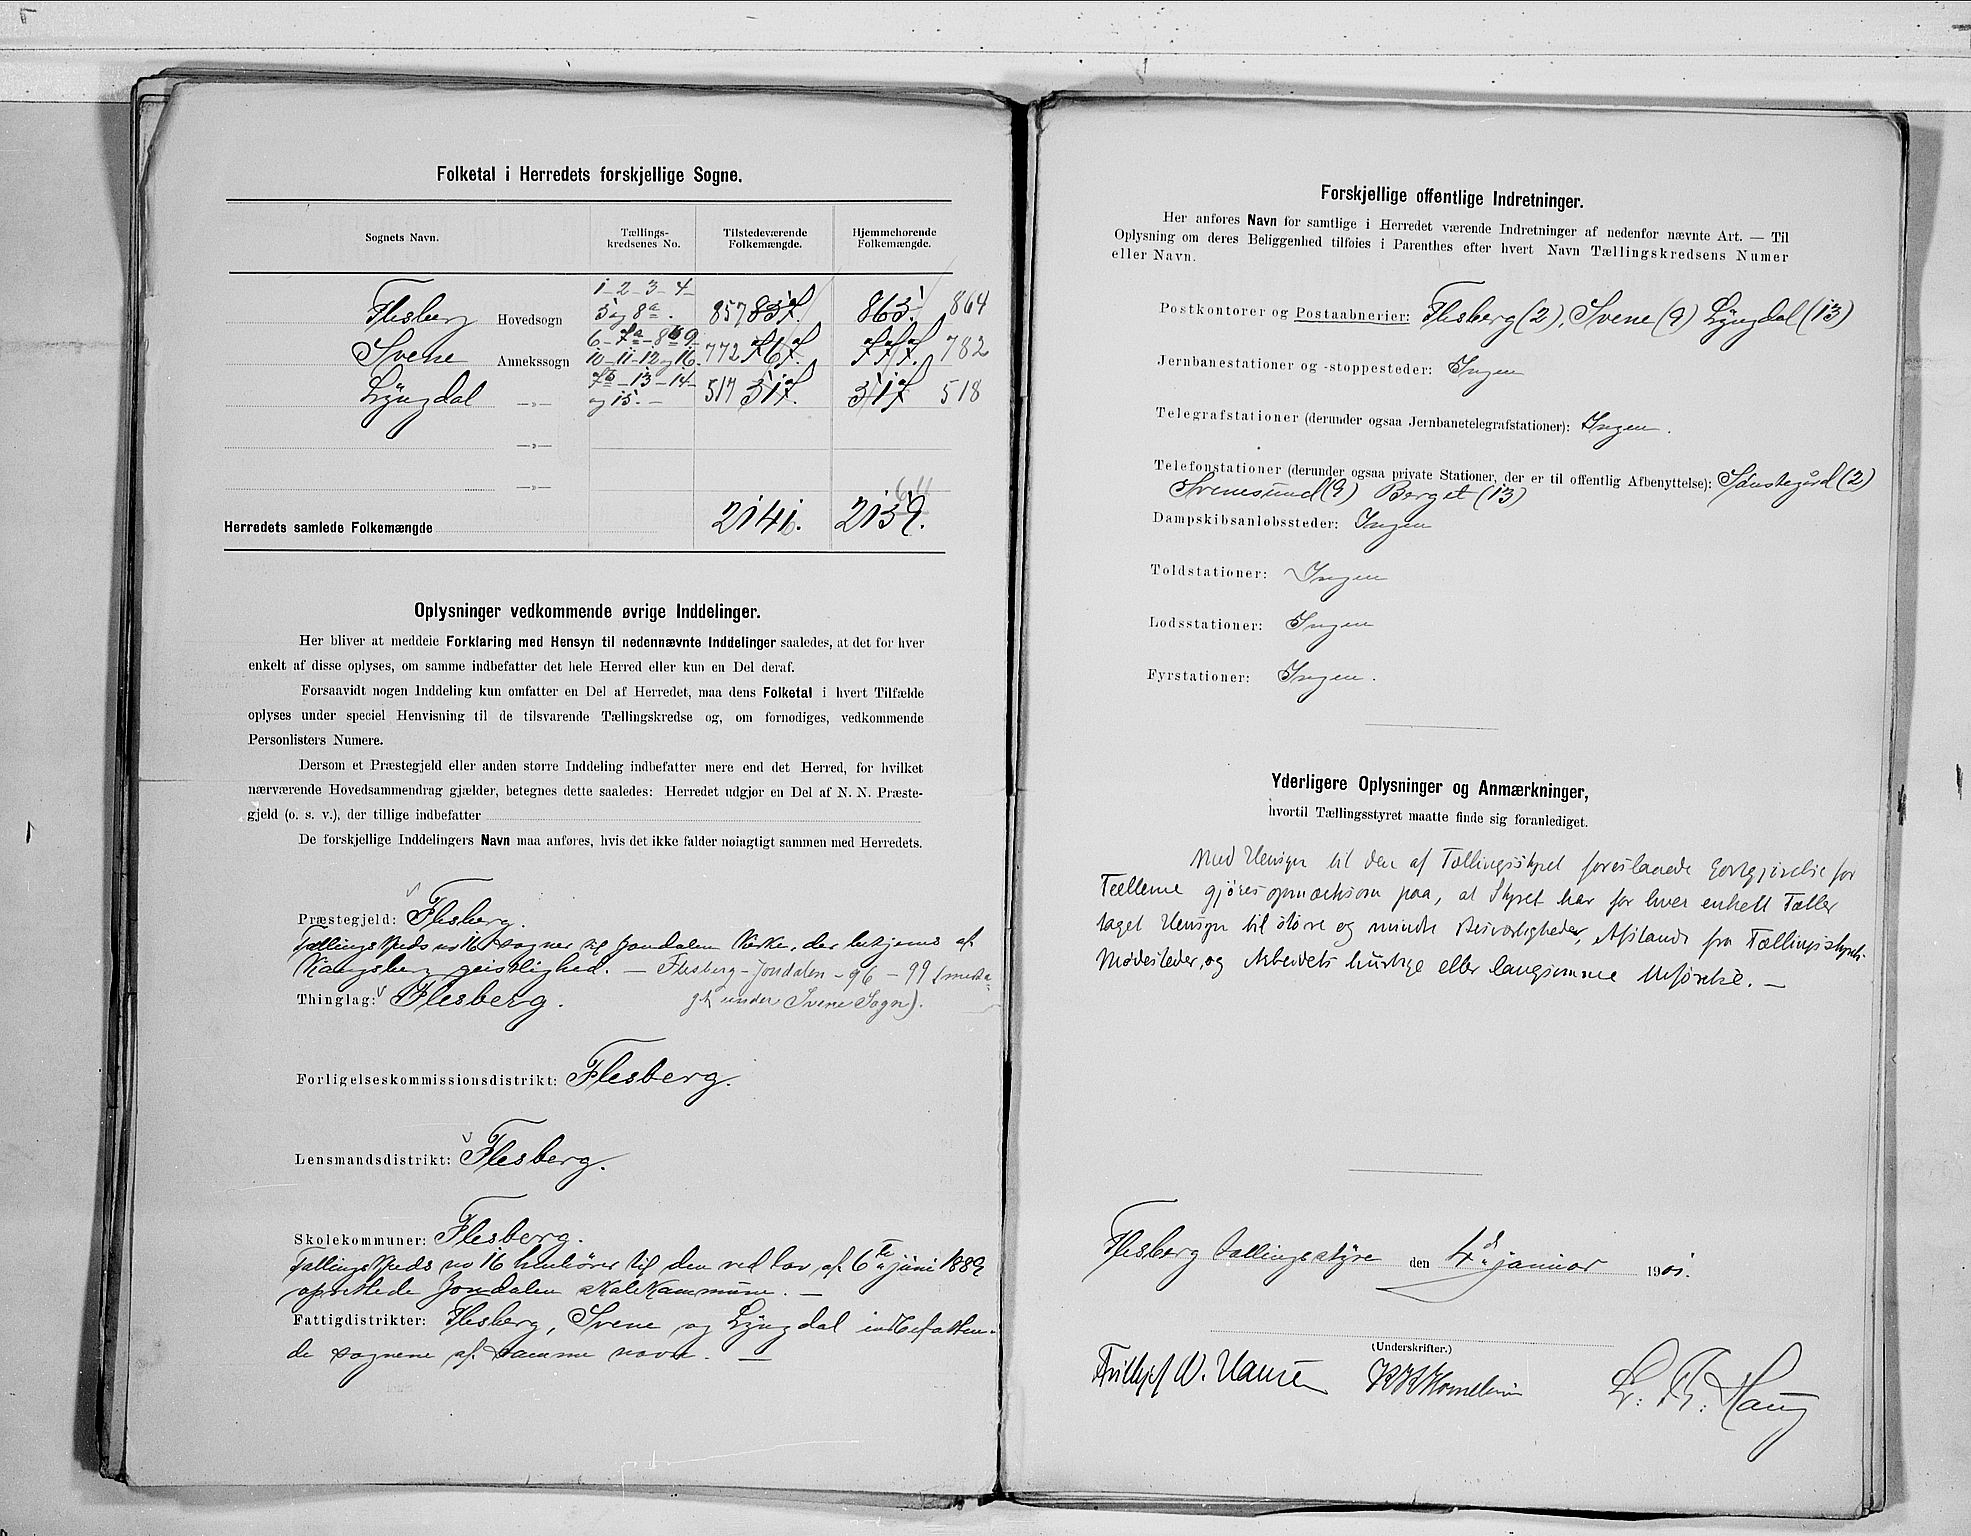 Folketal i Herredets forskjellige Sogne.
Sognets Navn. Tællings-kredsenes No. Tilstedeværende Folkemængde. Hjemmehørende Folkemængde.
1-2-3-4-
Flesberg Hovedsogn 5 og 8a. 857 837. 863. 864
6-7a-8b 9-
Svene Annekssogn 10-11-12 og 16. 772 767. 777. 782
7b-13-14-
Lÿngdal —»— og 15.— 517 517. 517 518
—»—
—»—
64
Herredets samlede Folkemængde 2141. 2139.
Oplysninger vedkommende øvrige Inddelinger.
Her bliver at meddele Forklaring med Hensyn til nedennævnte Inddelinger saaledes, at det for hver
enkelt af disse oplyses, om samme indbefatter det hele Herred eller kun en Del deraf.
Forsaavidt nogen Inddeling kun omfatter en Del af Herredet, maa dens Folketal i hvert Tilfælde
oplyses under speciel Henvisning til de tilsvarende Tællingskredse og, om fornødiges, vedkommende
Personlisters Numere.
Dersom et Præstegjeld eller anden større Inddeling indbefatter mere end det Herred, for hvilket
nærværende Hovedsammendrag gjælder, betegnes dette saaledes: Herredet udgjør en Del af N. N. Præste-
gjeld (o. s. v.), der tillige indbefatter
De forskjellige Inddelingers Navn maa anføres, hvis det ikke falder nøiagtigt sammen med Herredets.
Præstegjeld: Flesberg.
Tællingskreds no 16 sogner til Jondalen Kirke, der betjenes af
Kongsberg geistlighed. — Flesberg-Jondalen - 96 - 99 (medta-
Thinglag: Flesberg. gt under Svene Sogn).
Forligelseskommissionsdistrikt: Flesberg.
Lensmandsdistrikt: Flesberg.
Skolekommuner: Flesberg.
Tællingskreds no 16 henhører til den ved lov af 6te juni 1889
oprettede Jondalen skolekommune. —
Fattigdistrikter: Flesberg, Svene og Lÿngdal indbefatten-
de sognene af samme navn. —
Forskjellige offentlige Indretninger.
Her anføres Navn for samtlige i Herredet værende Indretninger af nedenfor nævnte Art. — Til
Oplysning om deres Beliggenhed tilføies i Parenthes efter hvert Navn Tællingskredsens Numer
eller Navn.
Postkontorer og Postaabnerier: Flesberg (2), Svene (9) Lÿngdal (13)
Jernbanestationer og -stoppesteder: Ingen
Telegrafstationer (derunder ogsaa Jernbanetelegrafstationer): Ingen.
Telefonstationer (derunder ogsaa private Stationer, der er til offentlig Afbenyttelse): Jønstegård (2)
Svenesund (9) Berget (13)
Dampskibsanløbssteder: Ingen
Toldstationer: Ingen
Lodsstationer: Ingen
Fyrstationer: Ingen.
Yderligere Oplysninger og Anmærkninger,
hvortil Tællingsstyret maatte finde sig foranlediget.
Med Hensyn til den af Tællingsstyret foreslaaede Godtgjørelse for
Tællerne gjøres opmærksom paa, at Styret har for hver enkelt Tæller
taget Hensyn til større og mindre Besværligheder, Afstande fra Tællingsstyrets
Mødesteder, og Arbeidets hurtige eller langsomme Udførelse. —
Flesberg tællingsstÿre den 4de januar 1901.
(Underskrifter.)
Fridtjof W. Hansen L. Th. Haug